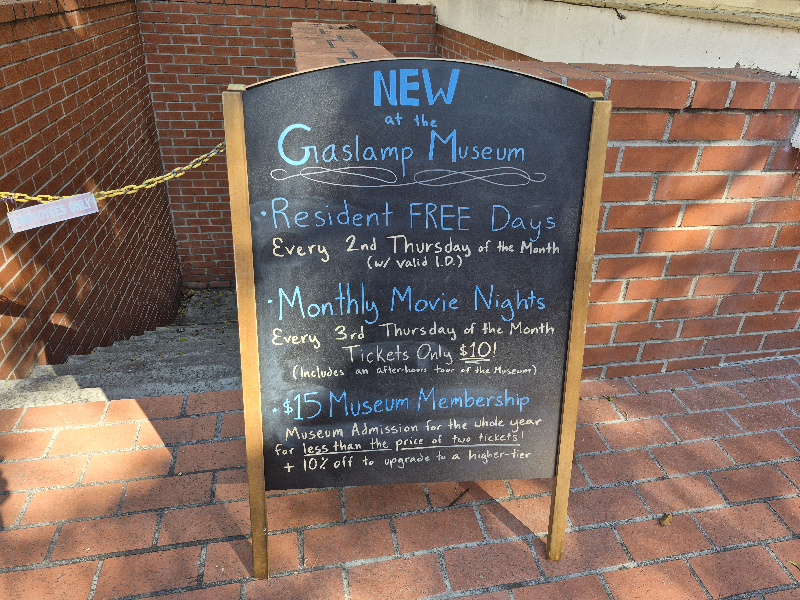 NEW
at the
Gaslamp Museum
·Resident FREE Days
Every 2nd Thursday of the Month
(w/ valid I.D.)
·Monthly Movie Nights
Every 3rd Thursday of the Month
Tickets Only $10!
(Includes an after-hours tour of the Museum)
·$15 Museum Membership
Museum Admission for the whole year
for less than the price of two tickets!
+ 10% off to upgrade to a higher-tier